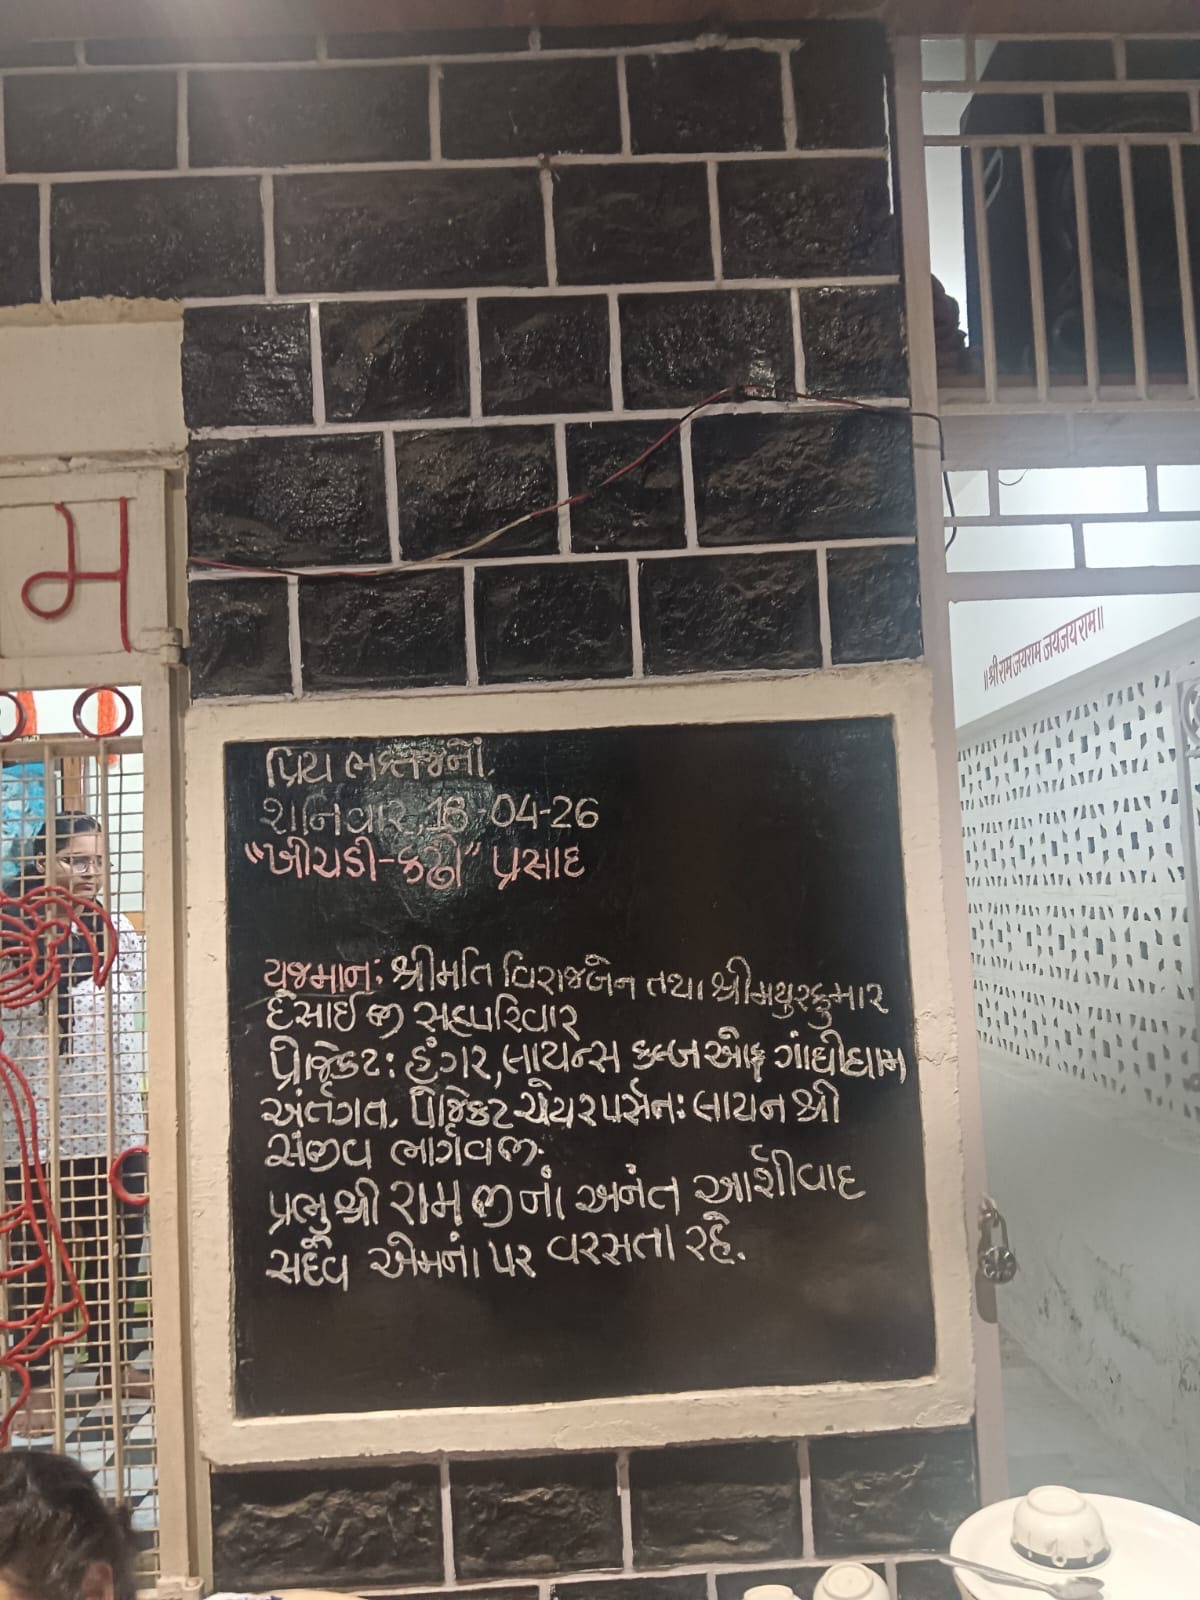 મ
॥श्रीराम जयराम जयजयराम॥
પ્રિય ભક્તજનોં.
શનિવાર, 18-04-26
"ખીચડી-કઢી" પ્રસાદ
યજમાન: શ્રીમતિ વિરાજબેન તથા શ્રીમયુરકુમાર
દેસાઈ જી સહપરિવાર
પ્રોજેક્ટ: હંગર, લાયન્સ ક્લબ ઓફ ગાંધીધામ
અંર્તગત. પ્રોજેક્ટ ચેયરપર્સન: લાયન શ્રી
સંજીવ ભાર્ગવજી.
પ્રભુ શ્રી રામ જી નાં અનંત આર્શીવાદ
સદૈવ એમનાં પર વરસતા રહે.